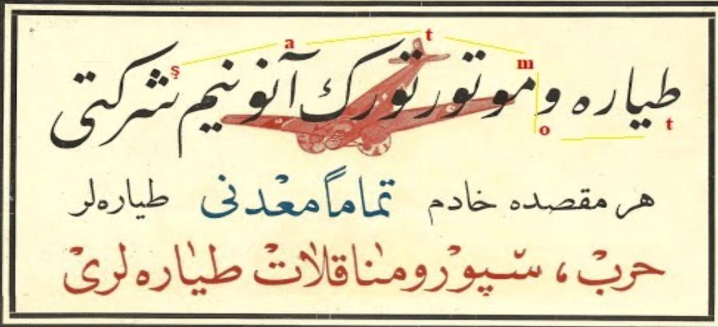 ش a t m o t
طیاره و موتور تورك آنونیم شركتی
هر مقصده خادم تماماً معدنی طیاره‌لر
حرب، سپور و مناقلات طیاره‌لری